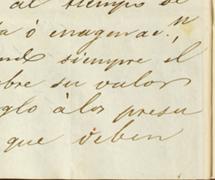 al tiempo de
a ó enagenac.n,
siempre el
bre su valor
glo á los presu
que deben